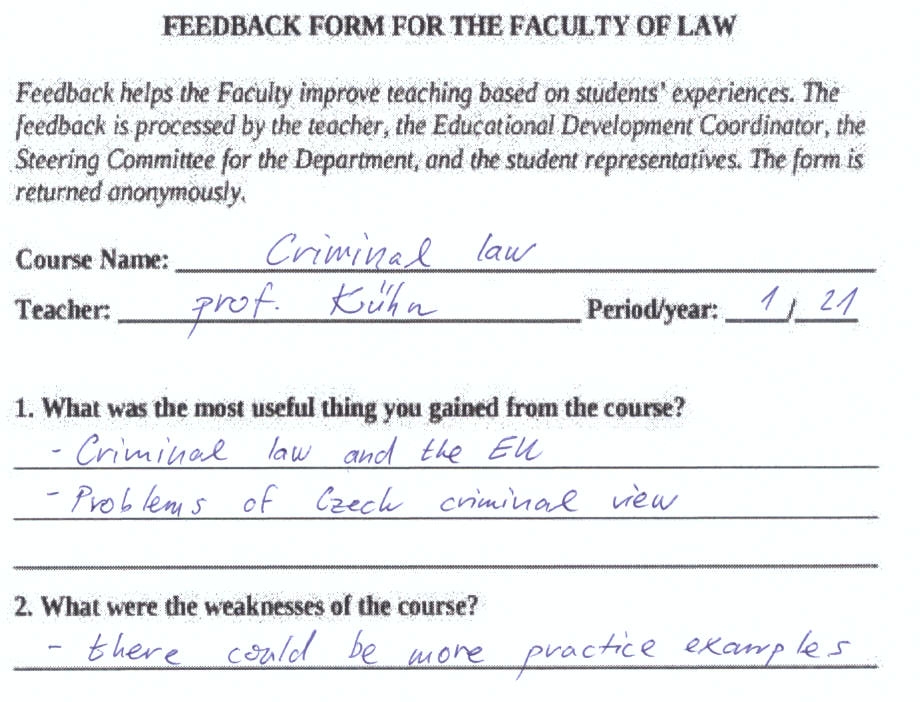 FEEDBACK FORM FOR THE FACULTY OF LAW
Feedback helps the Faculty improve teaching based on students' experiences. The
feedback is processed by the teacher, the Educational Development Coordinator, the
Steering Committee for the Department, and the student representatives. The form is
returned anonymously.
Course Name: Criminal law
Teacher: prof. Kühn Period/year: 1 / 21
1. What was the most useful thing you gained from the course?
- Criminal law and the EU
- Problems of Czech criminal view
2. What were the weaknesses of the course?
- there could be more practice examples